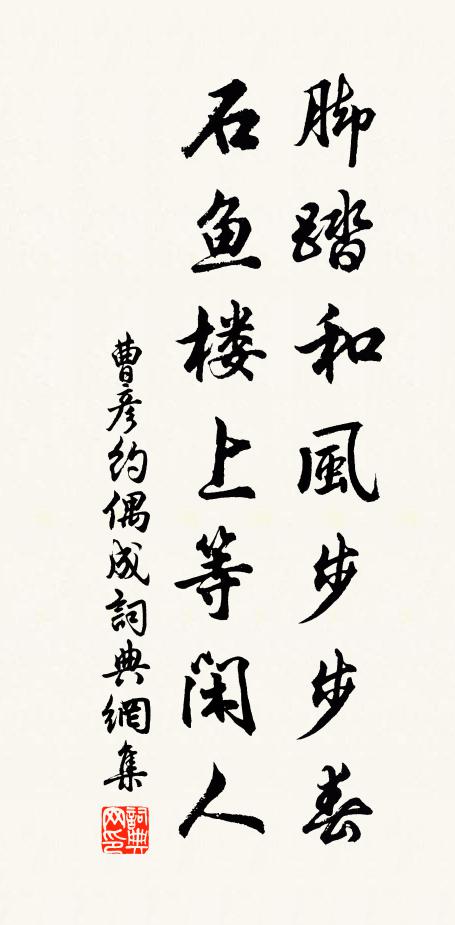 脚踏和風步步春
石鱼楼上等闲人
曹彦约偶成詞典網集
詞典網印